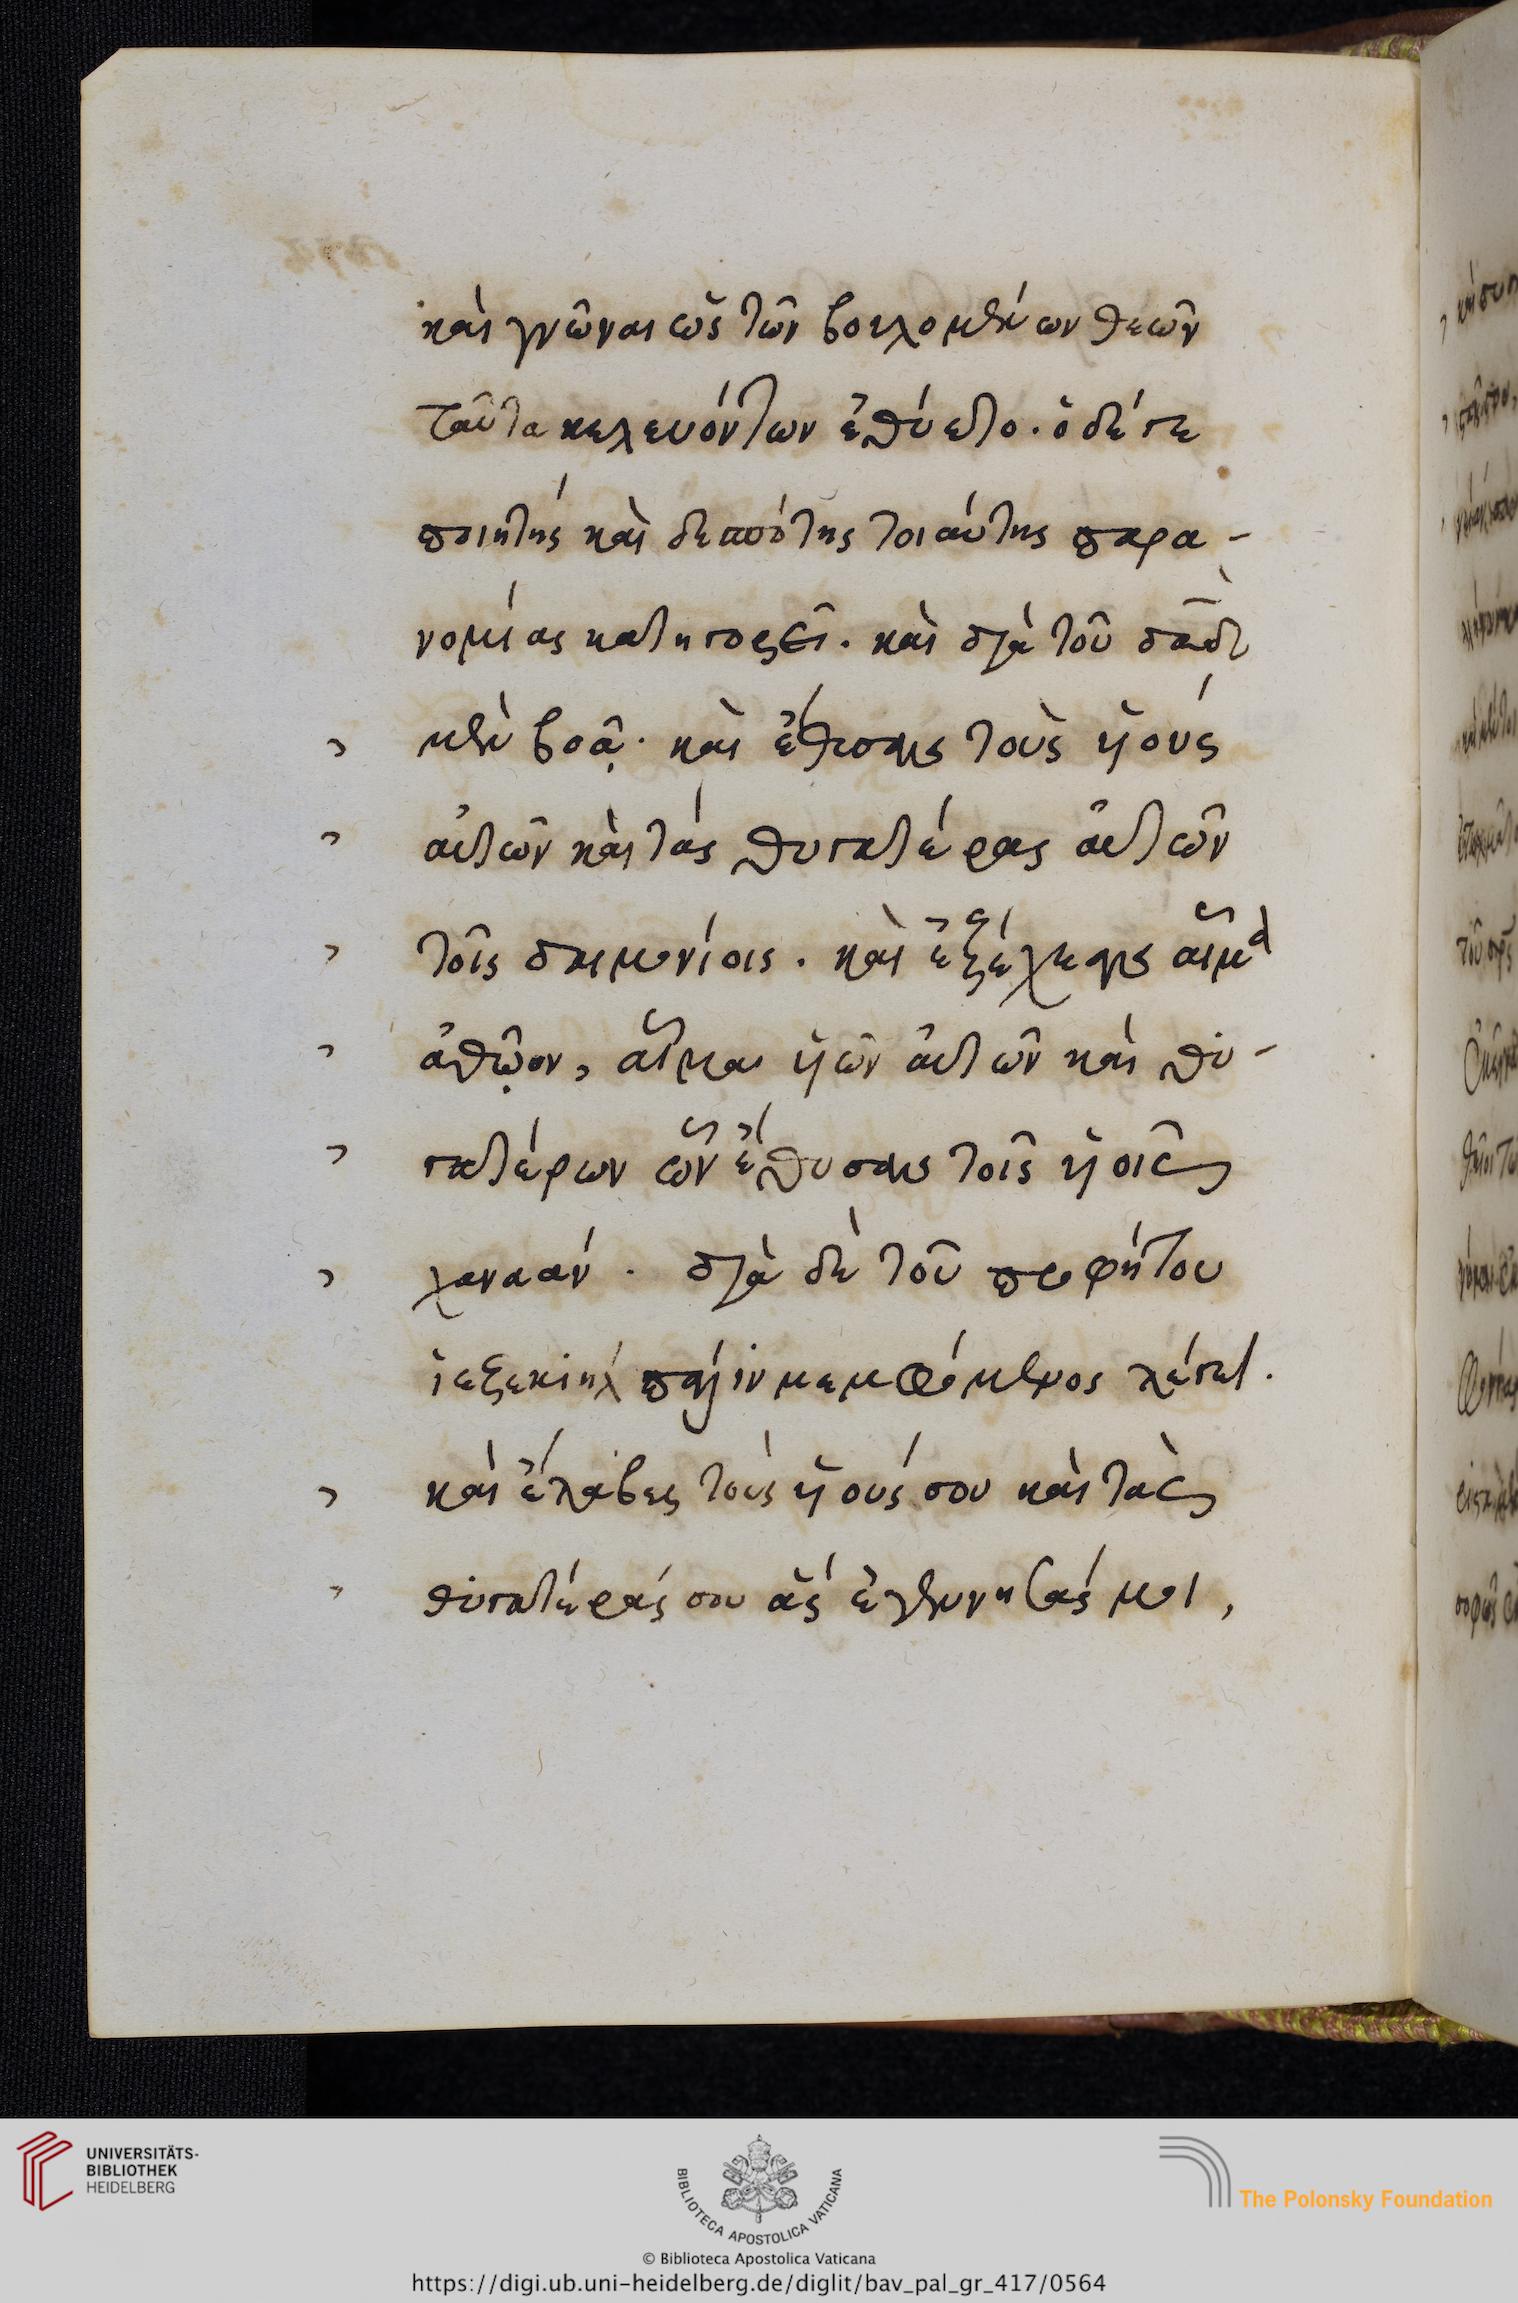 καὶ γνῶναι ὡς τῶν βουλομένων θεῶν
ταῦτα κελευόντων ἐθύετο. ὁ δέ γε
ποιητής καὶ δεσπότης τοιαύτης παρα-
νομίας κατηγορεῖ. καὶ διὰ τοῦ δα̅δ̅
μὲν βοᾷ. καὶ ἔθυσαν τοὺς υἱούς
αὐτῶν καὶ τάς θυγατέρας αὐτῶν
τοῖς δαιμονίοις. καὶ ἐξέχεαν αἷμα
ἀθῷον, αἷμα υἱῶν αὐτῶν καὶ θυ-
γατέρων ὧν ἔθυσαν τοῖς υἱοῖς
χαναάν. διὰ δὲ τοῦ προφήτου
ἰεζεκιήλ πάλιν μεμφόμενος λέγει.
καὶ ἔλαβες τούς υἱούς σου καὶ τὰς
θυγατέράς σου ἅς ἐγέννησάς μοι,
UNIVERSITÄTS-
BIBLIOTHEK
HEIDELBERG
BIBLIOTECA APOSTOLICA VATICANA
The Polonsky Foundation
© Biblioteca Apostolica Vaticana
https://digi.ub.uni-heidelberg.de/diglit/bav_pal_gr_417/0564